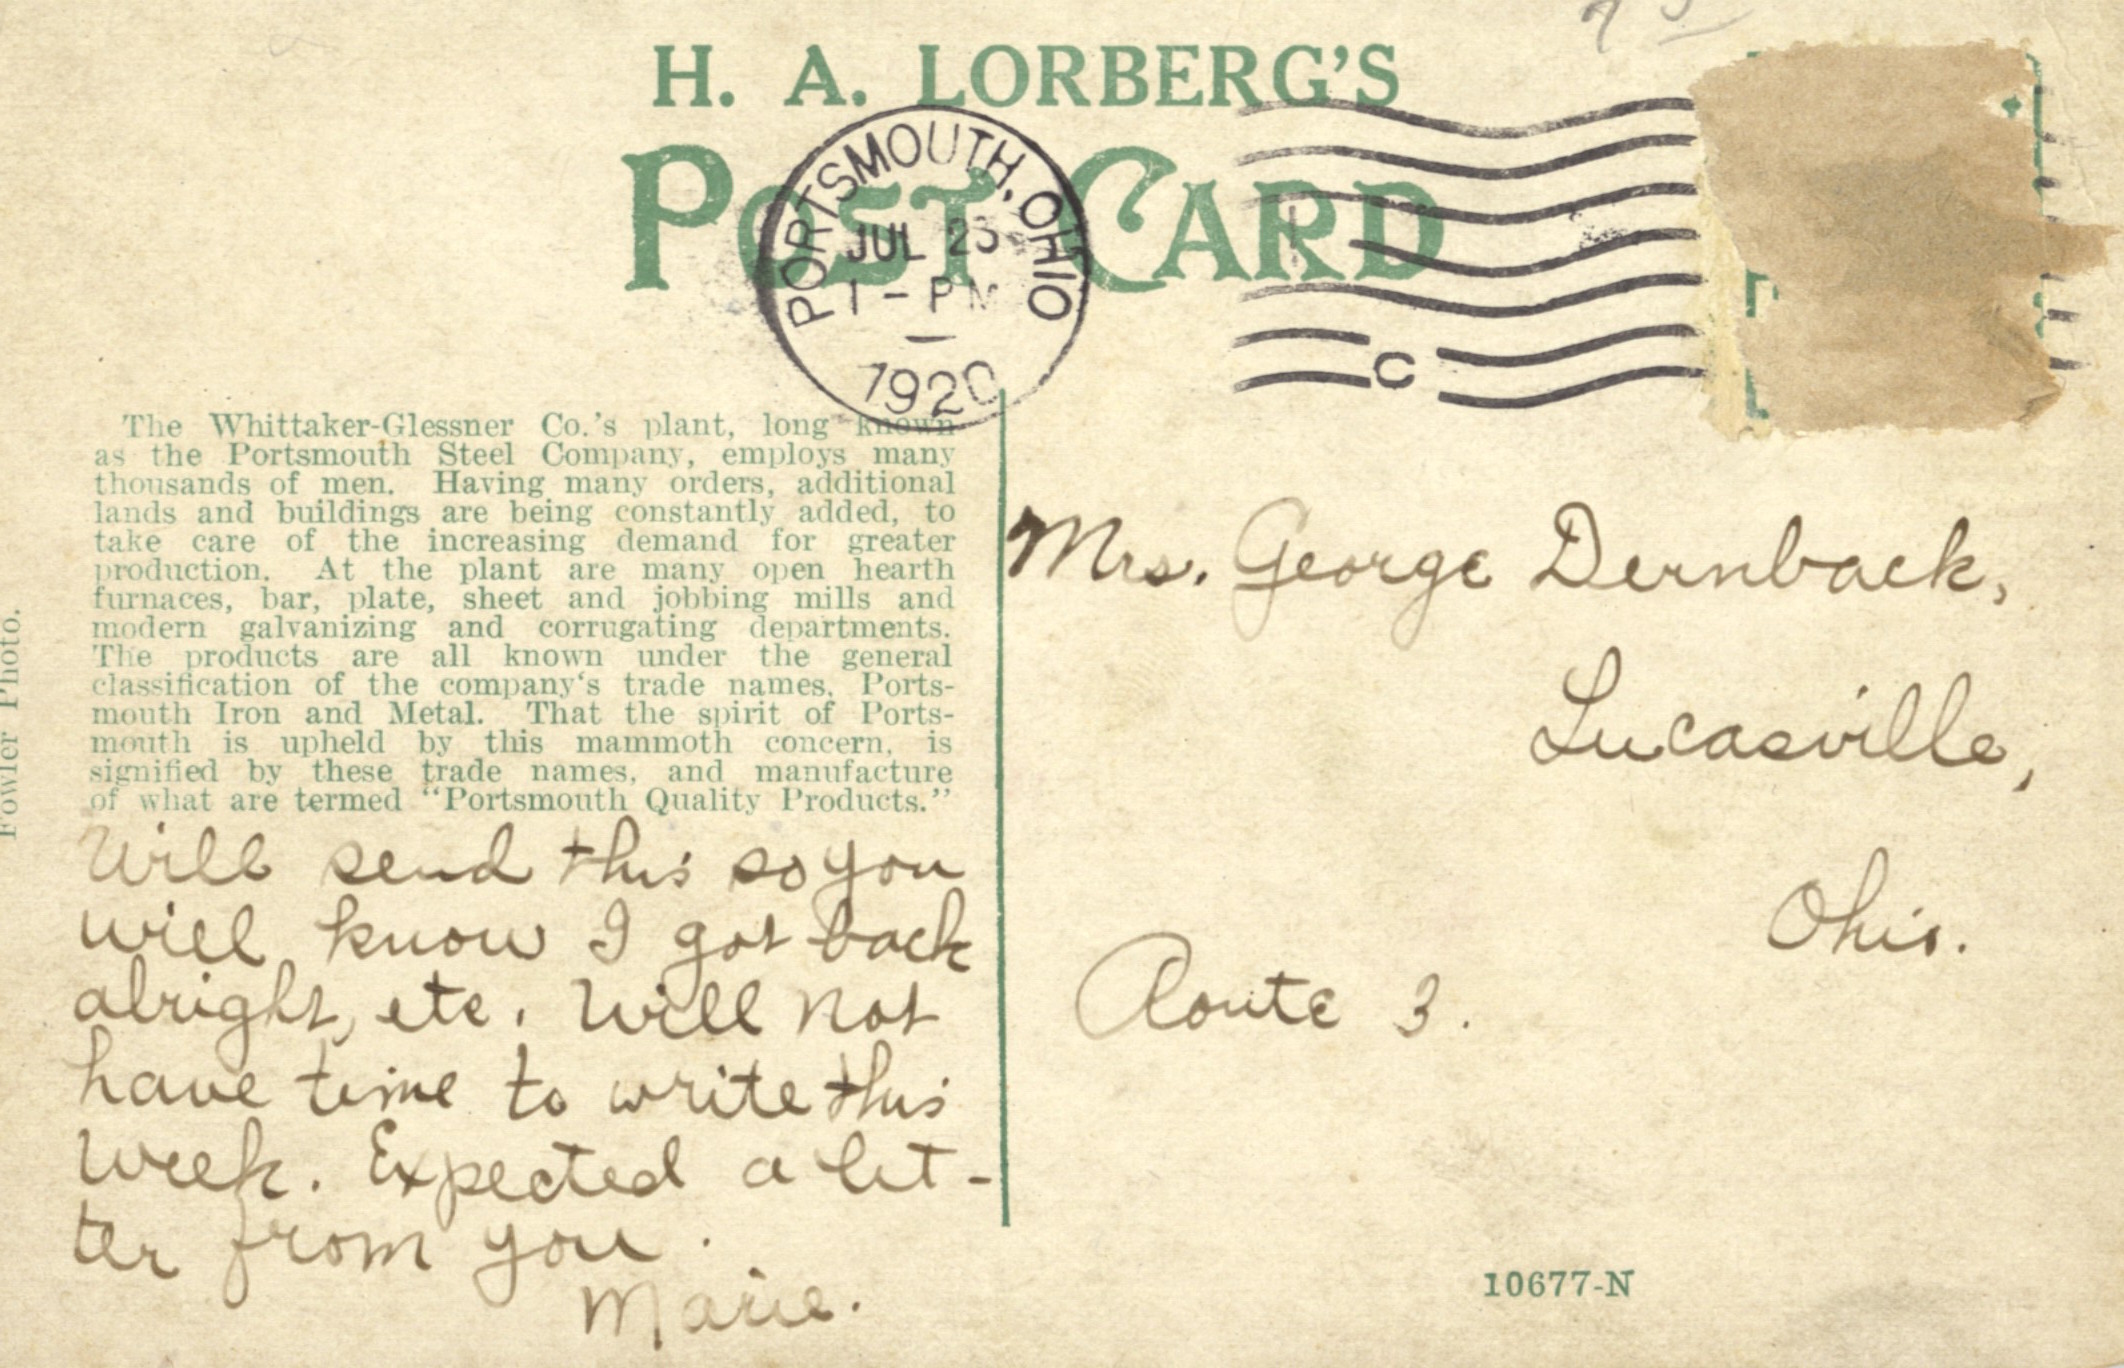 H. A. LORBERG'S
POST CARD
PORTSMOUTH, OHIO
JUL
1-PM
1920
C
The Whittaker-Glessner Co.'s plant, long known
as the Portsmouth Steel Company, employs many
thousands of men. Having many orders, additional
lands and buildings are being constantly added, to
take care of the increasing demand for greater
production. At the plant are many open hearth
furnaces, bar, plate, sheet and jobbing mills and
modern galvanizing and corrugating departments.
The products are all known under the general
classification of the company's trade names, Ports-
mouth Iron and Metal. That the spirit of Ports-
mouth is upheld by this mammoth concern, is
signified by these trade names, and manufacture
of what are termed "Portsmouth Quality Products."
Fowler Photo.
Will send this so you
will know I got back
alright, etc. Will not
have time to write this
week. Expected a let-
ter from you.
Marie.
Mrs. George Dernback,
Lucasville,
Ohio.
Route 3.
10677-N